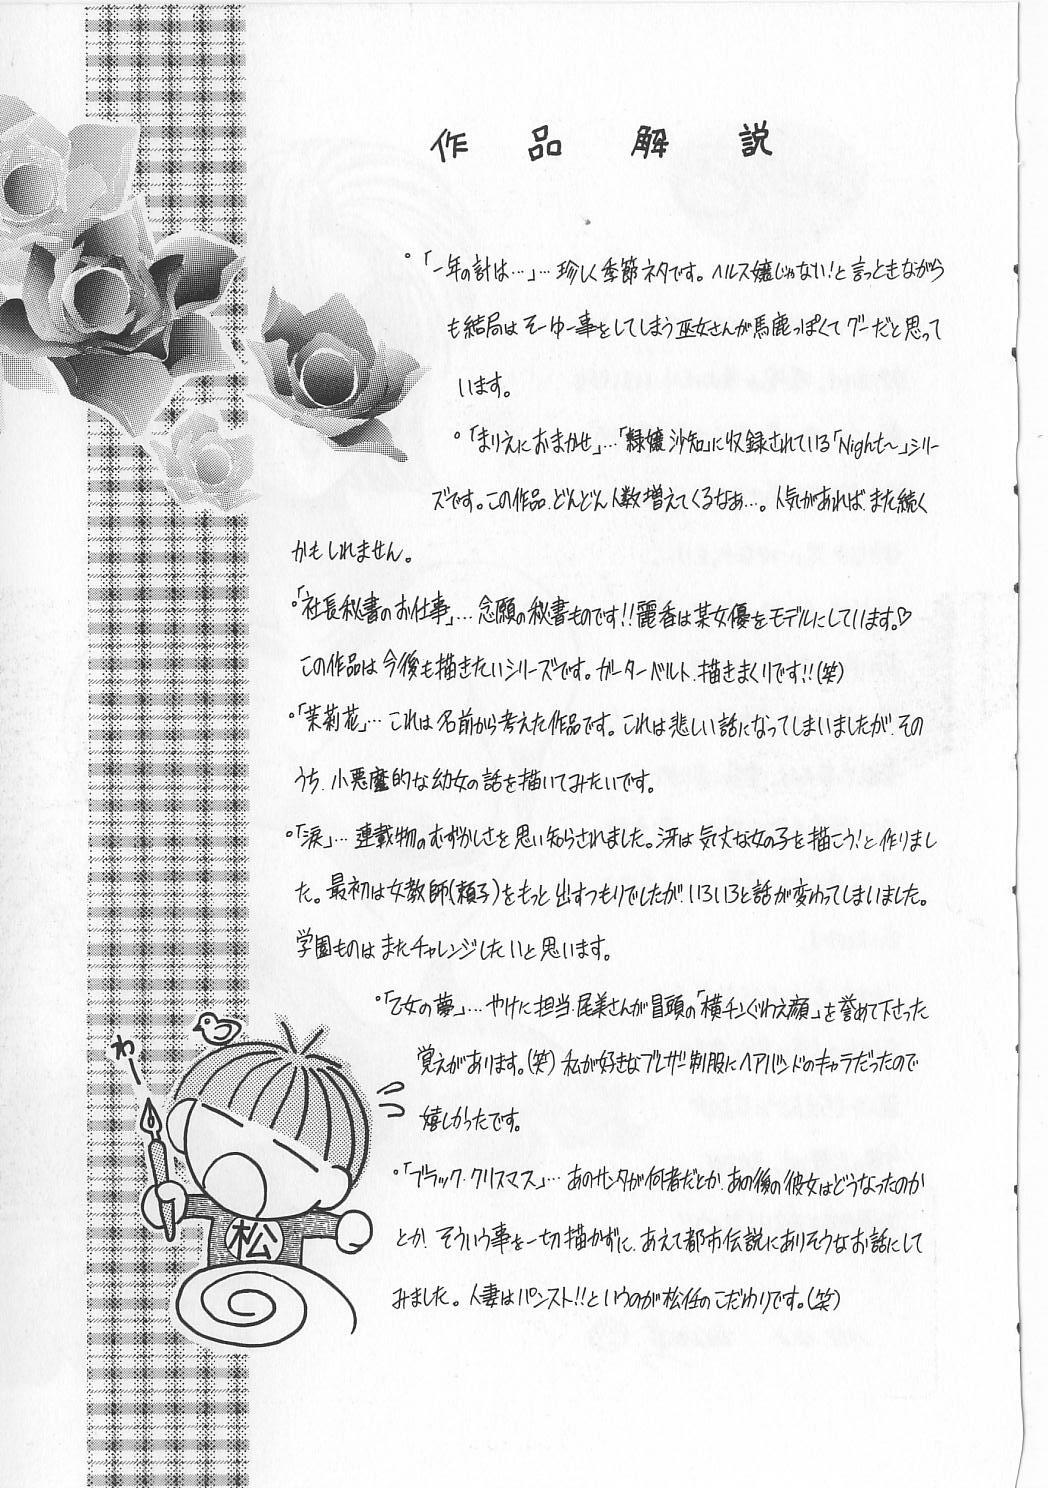 作品解説
。「一年の計は…」…珍しく季節ネタです。ヘルス嬢じゃない!と言っときながら
も結局はそーゆー事をしてしまう巫女さんが馬鹿っぽくてグーだと思って
います。
。「まりえにおまかせ」…「隷嬢沙知」に収録されている「Night〜」シリー
ズです。この作品、どんどん人数増えてくるなぁ…。人気があれば、また続く
かもしれません。
。「社長秘書のお仕事」…念願の秘書ものです!!麗香は某女優をモデルにしています。♡
この作品は今後も描きたいシリーズです。ガーターベルト、描きまくりです!!(笑)
。「茉莉花」…これは名前から考えた作品です。これは悲しい話になってしまいましたが、その
うち、小悪魔的な幼女の話を描いてみたいです。
。「涙」…連載物のむずかしさを思い知らされました。冴は気丈な女の子を描こう!と作りまし
た。最初は女教師(頼子)をもっと出すつもりでしたが、いろいろと話が変わってしまいました。
学園ものはまたチャレンジしたいと思います。
。「乙女の夢」…やけに担当・尾美さんが冒頭の「横チンぐわえ顔」を誉めて下さった
覚えがあります。(笑)私が好きなブレザー制服にヘアバンドのキャラだったので
嬉しかったです。
。「ブラック・クリスマス」…あのサンタが何者だとか、あの後の彼女はどうなったのか
とか、そういう事を一切描かずに、あえて都市伝説にありそうなお話にして
みました。人妻はパンスト!!というのが松任のこだわりです。(笑)
わー
松